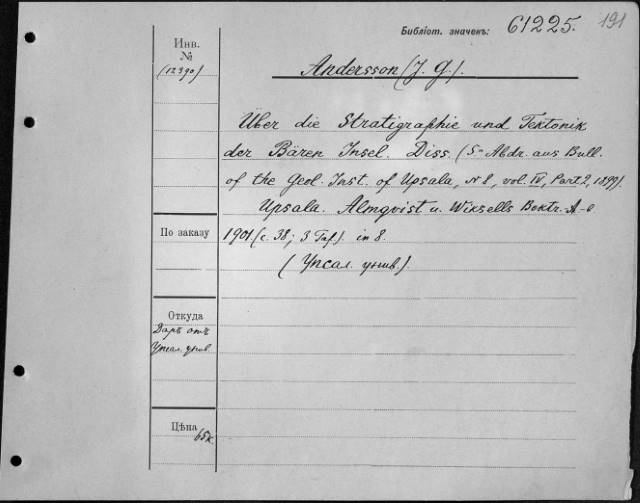 Библіот. значекъ: 61225. 191
Инв. № (12390)
Andersson (J. G.).
Über die Stratigraphie und Tektonik
der Bären Insel. Diss. (S-Abdr. aus Bull.
of the Geol. Inst. of Upsala, N 8, vol. IV, Part 2, 1899).
Upsala. Almqvist u. Wiksells Boktr. A-e
По заказу
1901 (с. 38; 3 Taf.). in 8.
(Упсал. унив.).
Откуда
Даръ отъ
Упсал. унив.
Цѣна 65к.